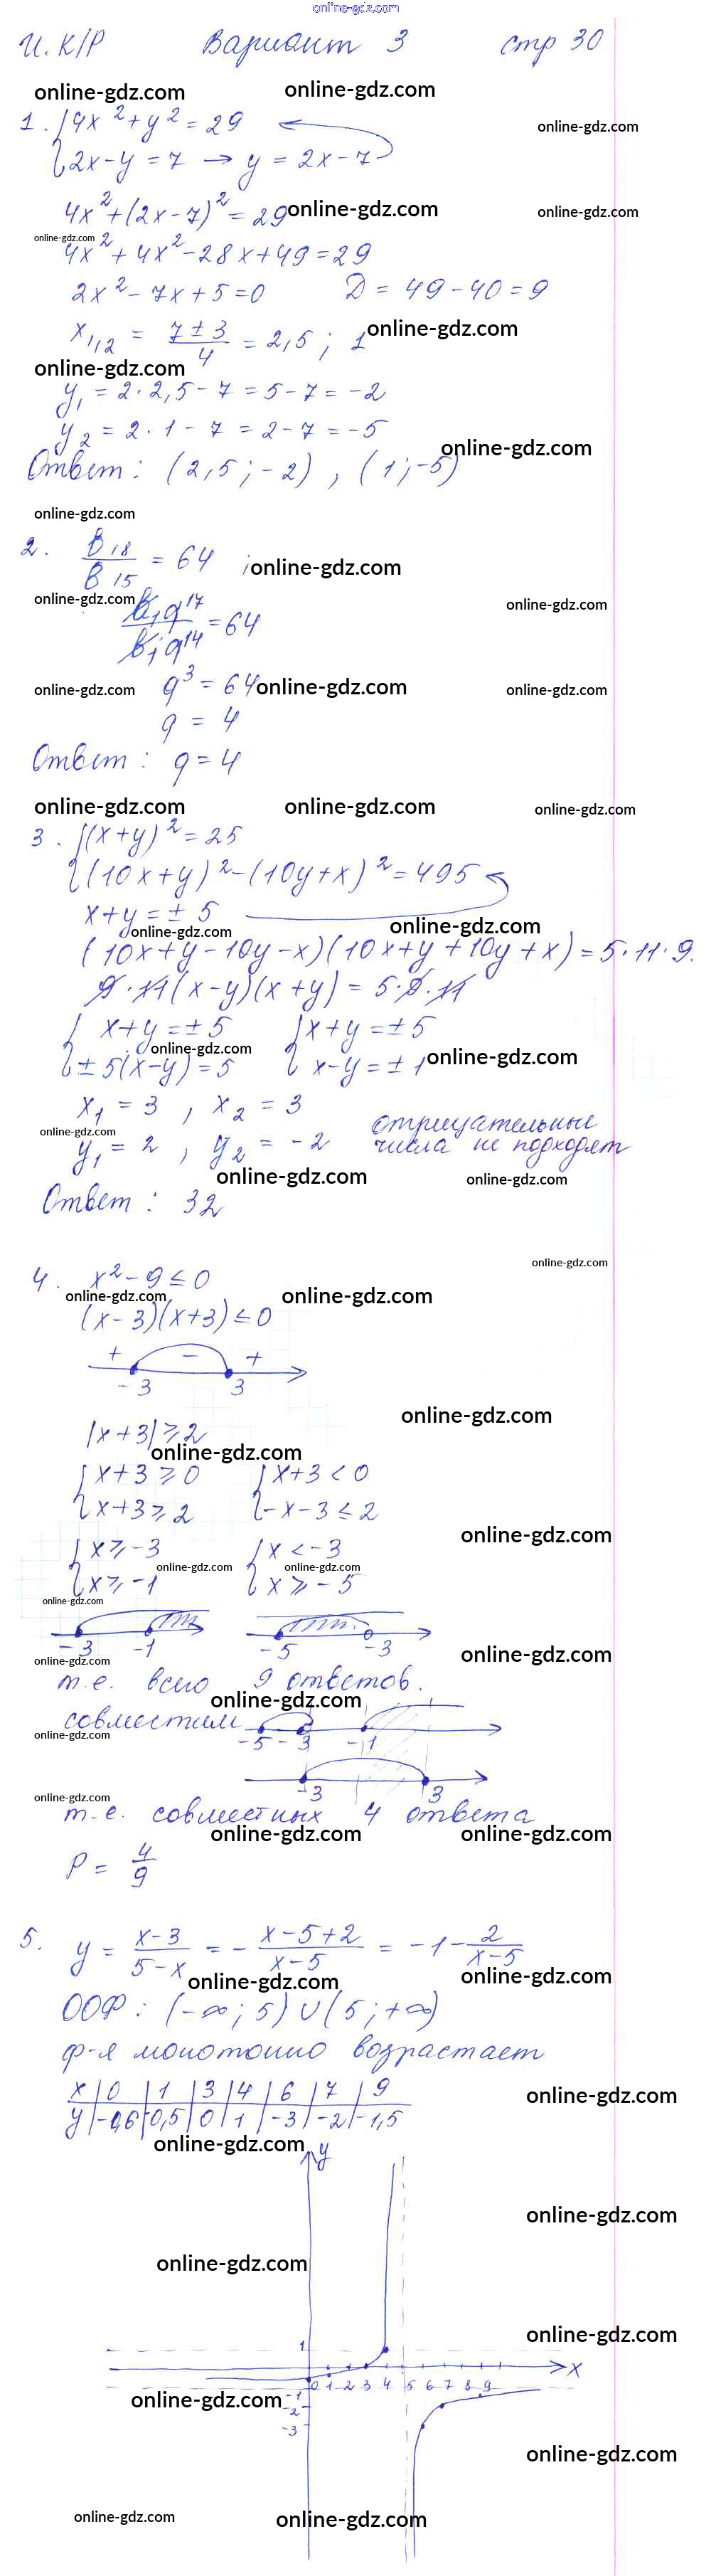 online-gdz.com
И. К/Р Вариант 3 стр 30
online-gdz.com online-gdz.com
online-gdz.com
1. {4x² + y² = 29
{2x - y = 7 → y = 2x - 7
4x² + (2x - 7)² = 29 online-gdz.com online-gdz.com
online-gdz.com
4x² + 4x² - 28x + 49 = 29
2x² - 7x + 5 = 0 D = 49 - 40 = 9
x₁,₂ = (7 ± 3)/4 = 2,5 ; 1 online-gdz.com
online-gdz.com
y₁ = 2 · 2,5 - 7 = 5 - 7 = -2
y₂ = 2 · 1 - 7 = 2 - 7 = -5
online-gdz.com
Ответ: (2,5 ; -2) , (1 ; -5)
online-gdz.com
2. B₁₈/B₁₅ = 64 ; online-gdz.com
online-gdz.com online-gdz.com
b₁q¹⁷/b₁q¹⁴ = 64
online-gdz.com q³ = 64 online-gdz.com online-gdz.com
q = 4
Ответ: q = 4
online-gdz.com online-gdz.com online-gdz.com
3. {(x + y)² = 25
{(10x + y)² - (10y + x)² = 495
x + y = ± 5
online-gdz.com online-gdz.com
(10x + y - 10y - x)(10x + y + 10y + x) = 5 · 11 · 9.
9 · 11(x - y)(x + y) = 5 · 9 · 11
{x + y = ± 5 {x + y = ± 5
online-gdz.com online-gdz.com
{± 5(x - y) = 5 {x - y = ± 1
x₁ = 3 , x₂ = 3
online-gdz.com
y₁ = 2 , y₂ = -2 отрицательные
числа не подходят
online-gdz.com online-gdz.com
Ответ: 32
online-gdz.com
4. x² - 9 ≤ 0
online-gdz.com online-gdz.com
(x - 3)(x + 3) ≤ 0
+ - +
-3 3
online-gdz.com
|x + 3| ≥ 2
online-gdz.com
{x + 3 ≥ 0 {x + 3 < 0
{x + 3 ≥ 2 {-x - 3 ≤ 2
online-gdz.com
{x ≥ -3 {x < -3
online-gdz.com online-gdz.com
{x ≥ -1 {x ≥ -5
online-gdz.com
-3 -1 -5 -3
online-gdz.com
online-gdz.com
т.е. всего 9 ответов.
online-gdz.com
совместим
online-gdz.com
-5 -3 -1
-3 3
online-gdz.com
т.е. совместных 4 ответа
online-gdz.com online-gdz.com
P = 4/9
5. y = (x - 3)/(5 - x) = - (x - 5 + 2)/(x - 5) = -1 - 2/(x - 5)
online-gdz.com online-gdz.com
ООФ: (-∞ ; 5) ∪ (5 ; +∞)
ф-я монотонно возрастает
x | 0 | 1 | 3 | 4 | 6 | 7 | 9
online-gdz.com
y | -0,6 | -0,5 | 0 | 1 | -3 | -2 | -1,5
online-gdz.com
y
online-gdz.com
online-gdz.com
online-gdz.com
1
x
0 1 2 3 4 5 6 7 8 9
online-gdz.com
-1
-2
-3
online-gdz.com
online-gdz.com online-gdz.com